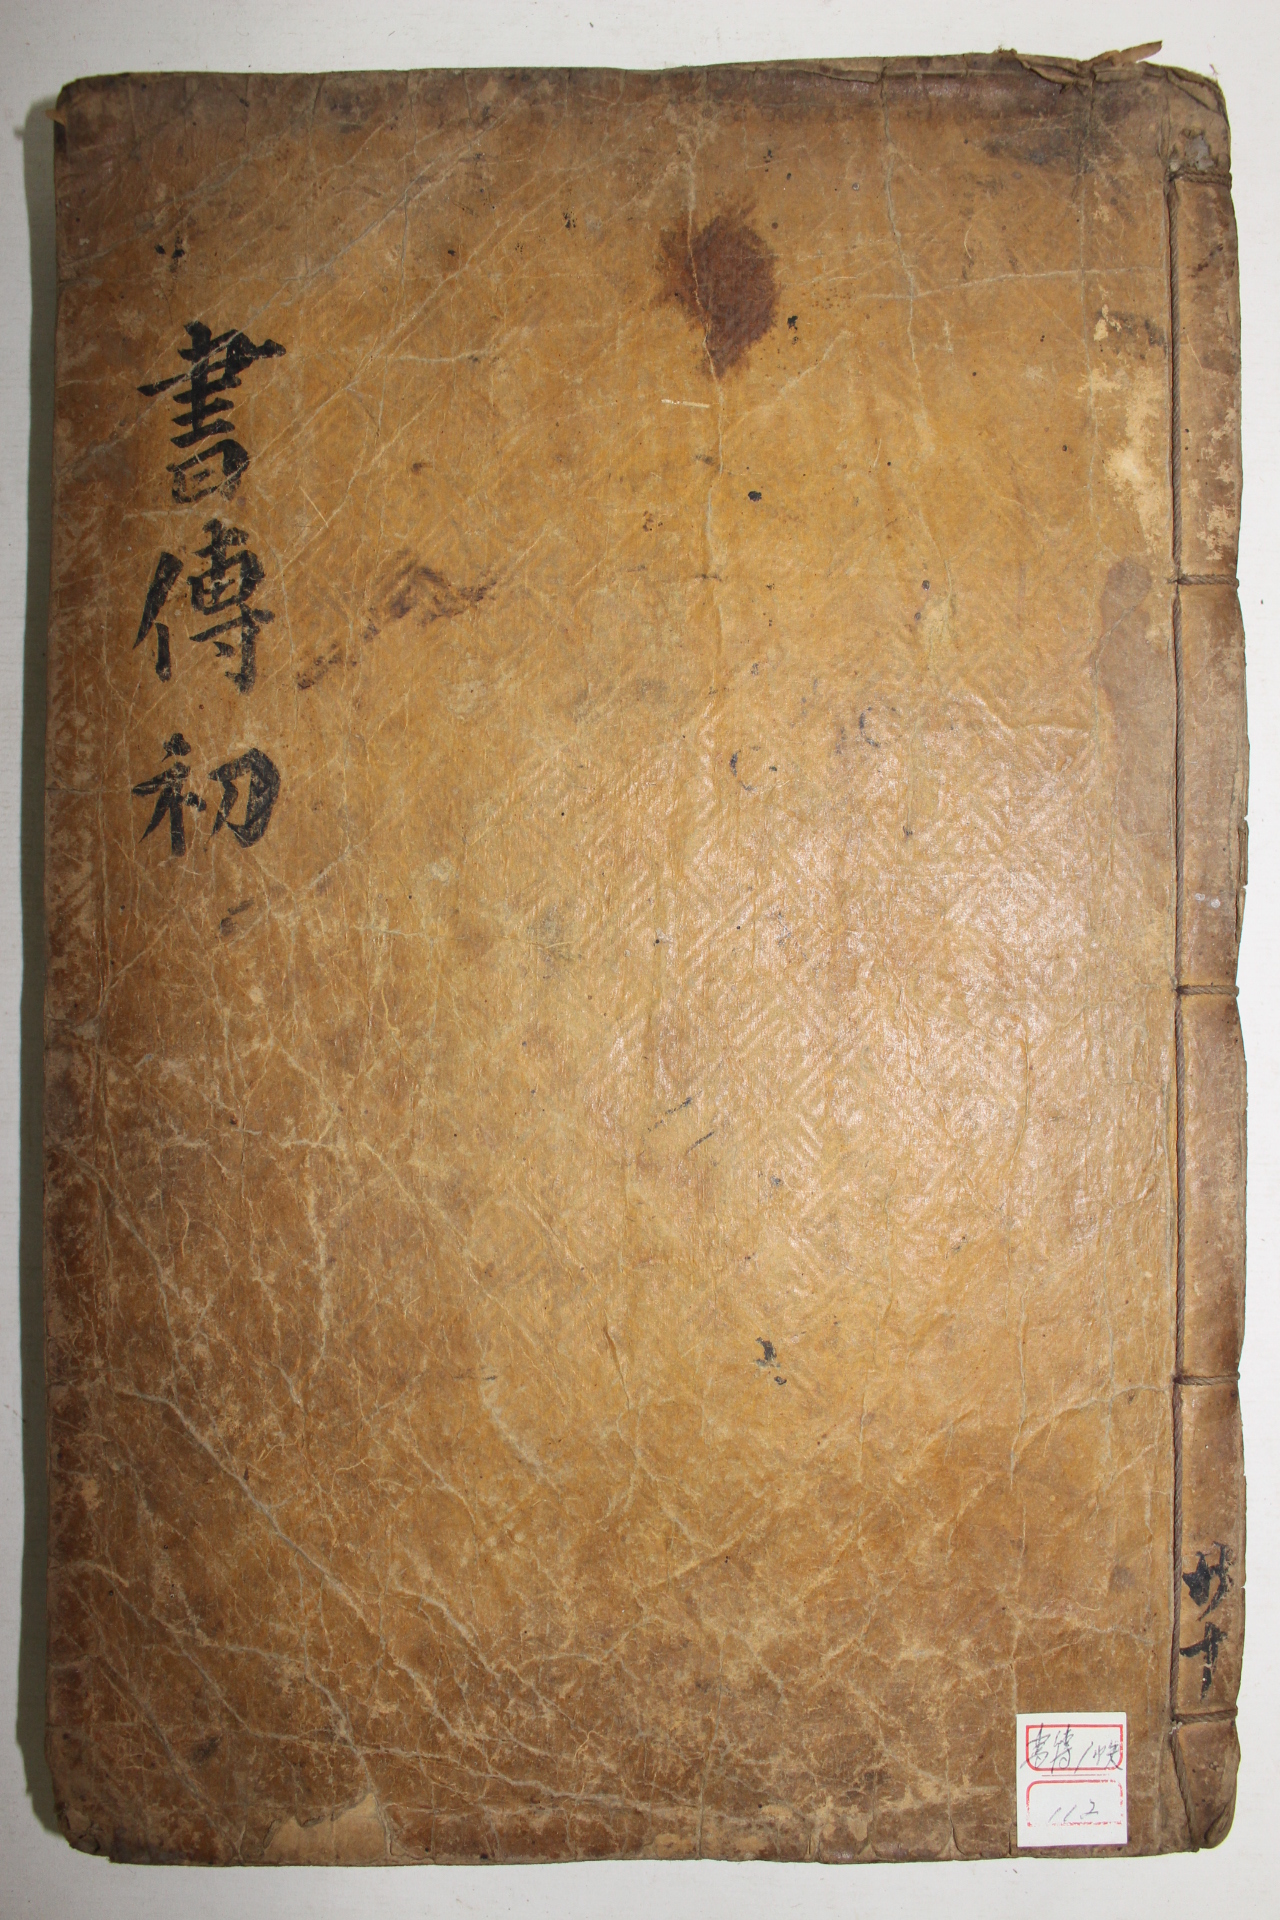 書傳 初
共十
書傳 1帙
112